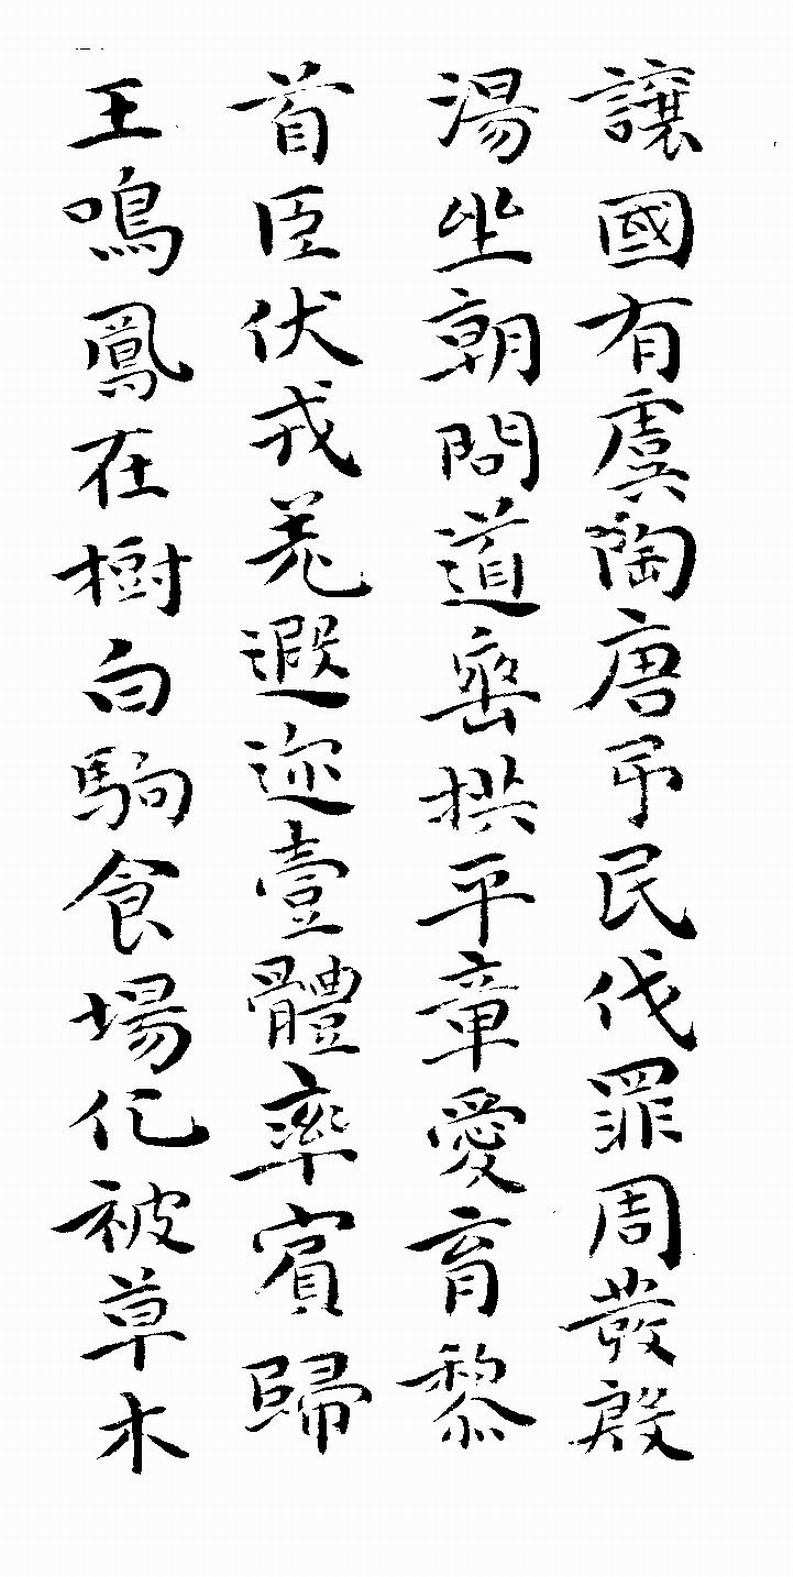 讓國有虞陶唐弔民伐罪周發殷
湯坐朝問道垂拱平章愛育黎
首臣伏戎羌遐迩壹體率賓歸
王鳴鳳在樹白駒食場化被草木